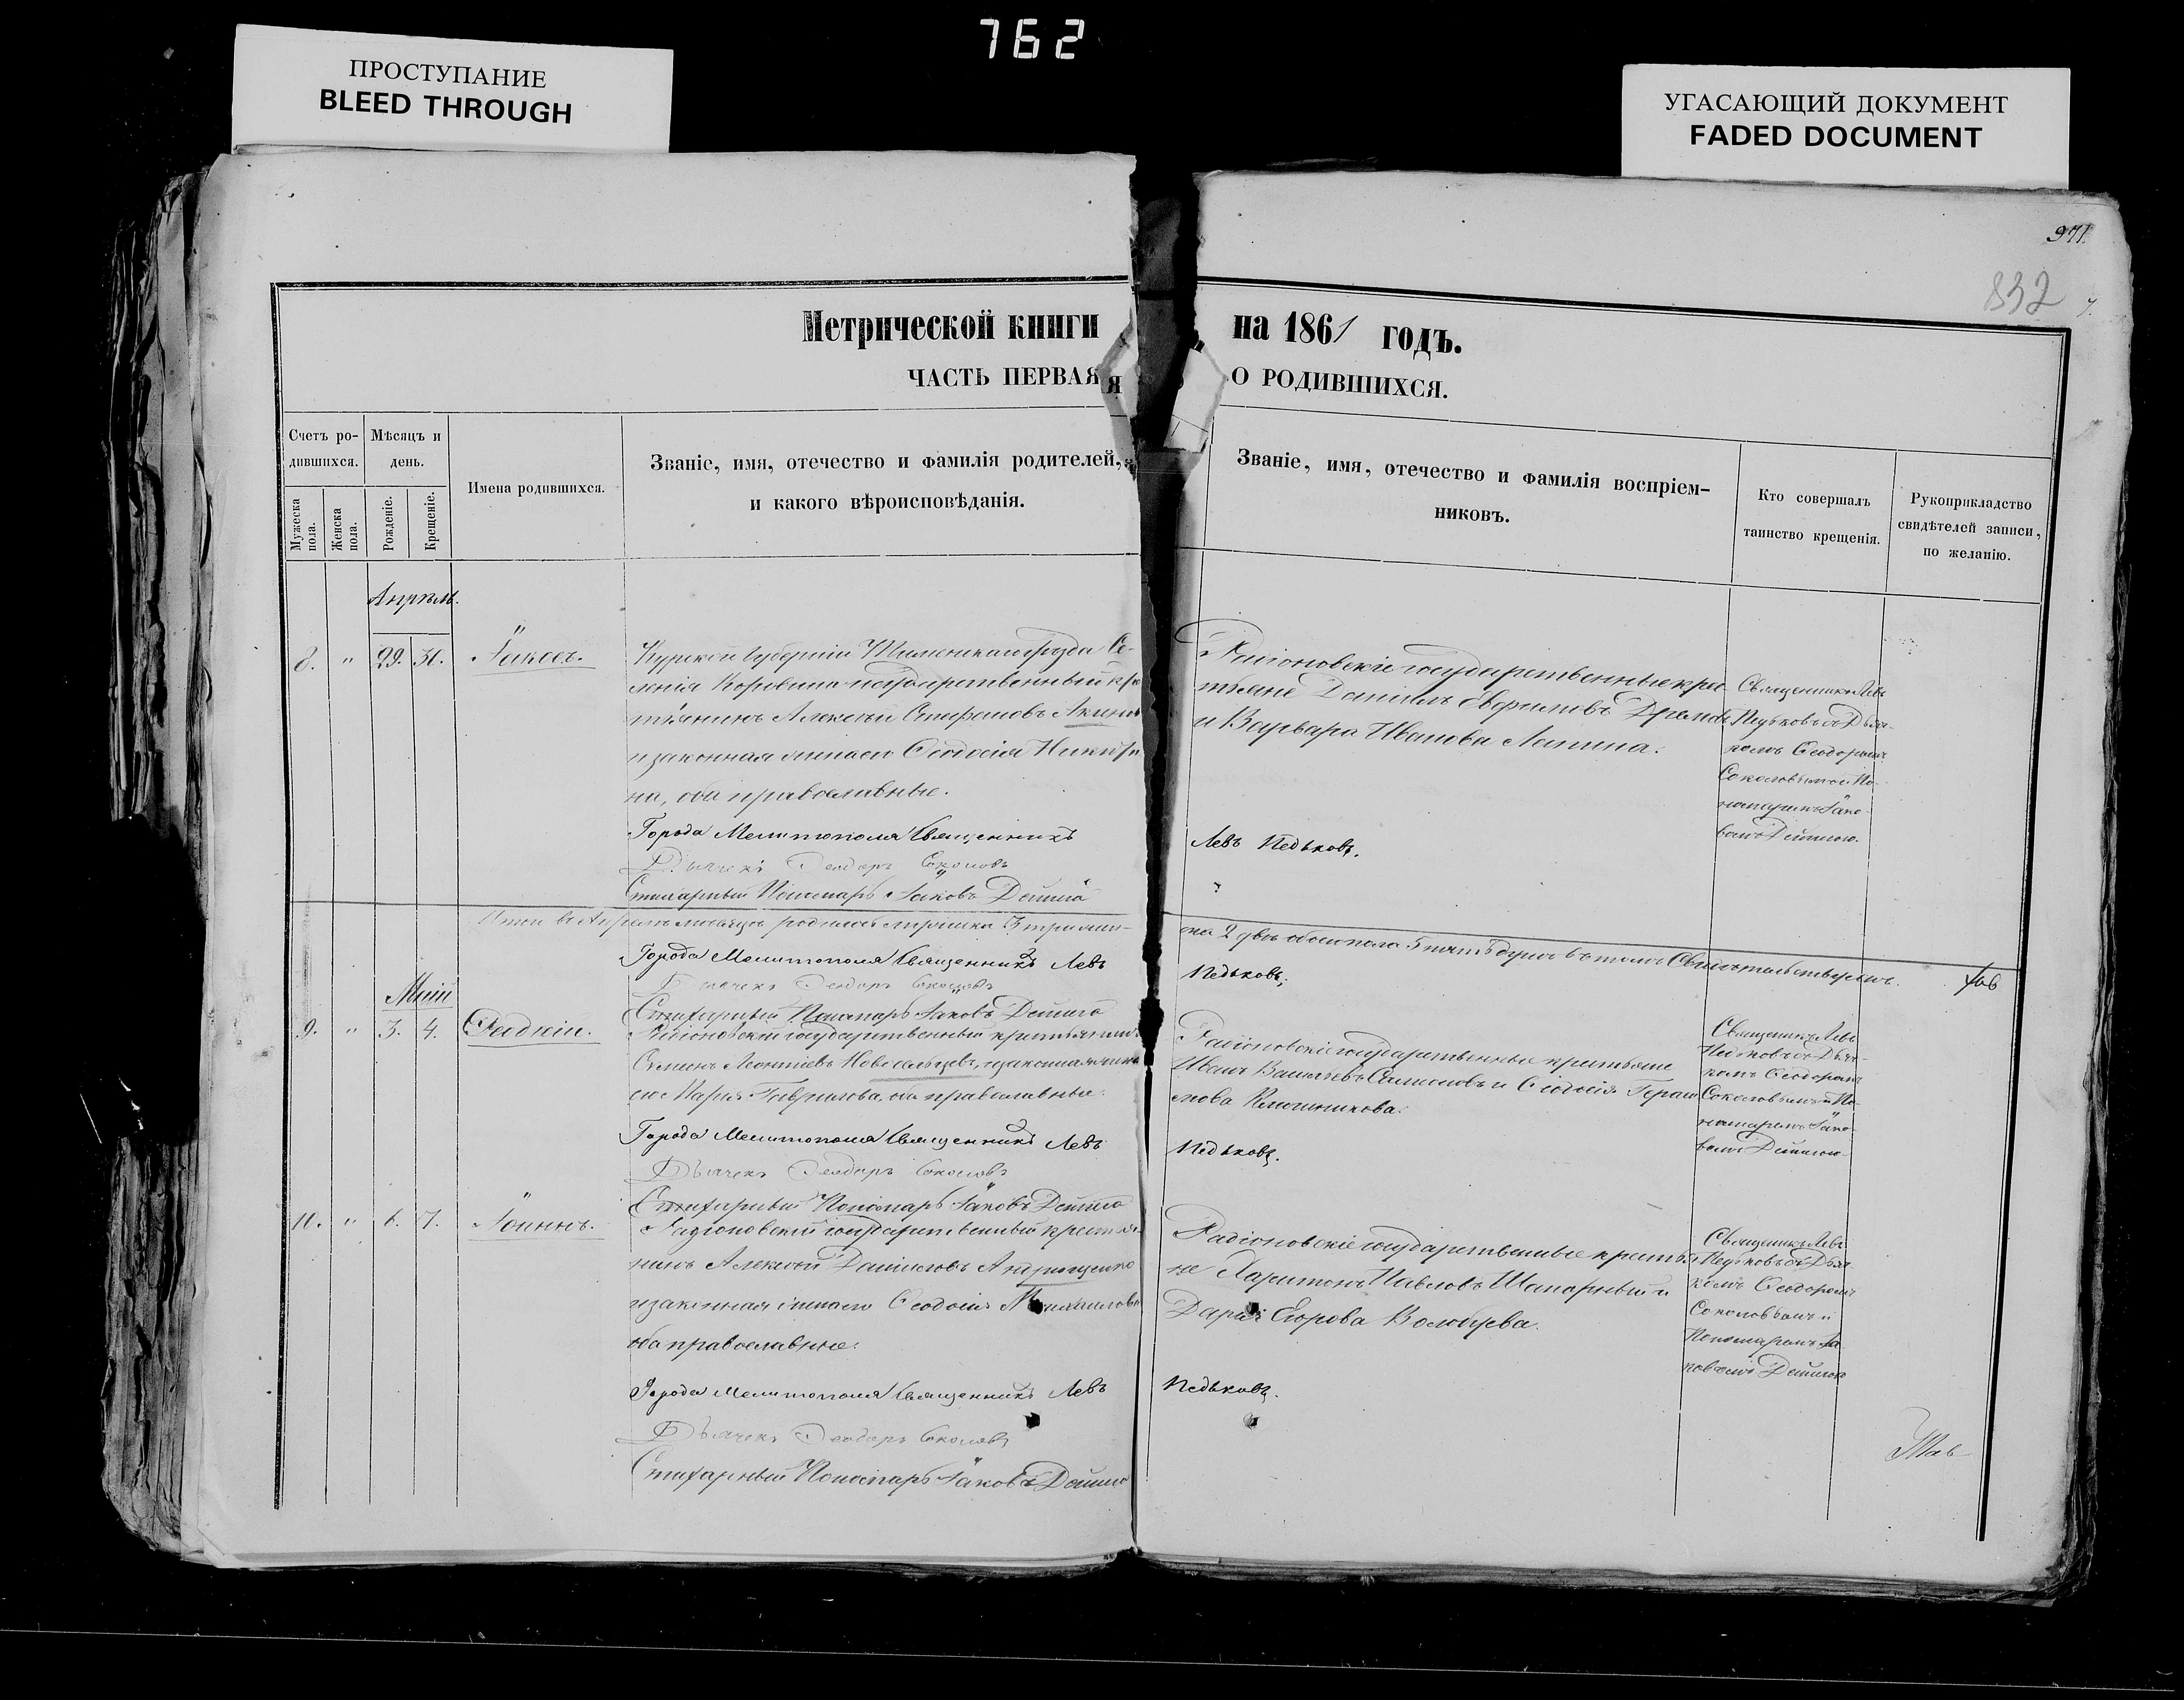 762
ПРОСТУПАНИЕ
BLEED THROUGH
УГАСАЮЩИЙ ДОКУМЕНТ
FADED DOCUMENT
971
832
Метрической книги на 1861 годъ.
ЧАСТЬ ПЕРВАЯ О РОДИВШИХСЯ.
Счетъ ро-
дившихся.
Мужеска пола.
Женска пола.
Мѣсяцъ и
день.
Рожденіе.
Крещеніе.
Имена родившихся.
Званіе, имя, отечество и фамилія родителей,
и какого вѣроисповѣданія.
Званіе, имя, отечество и фамилія воспріем-
никовъ.
Кто совершалъ
таинство крещенія.
Рукоприкладство
свидѣтелей записи,
по желанію.
Апрѣль.
8. " 29. 30. Іаковъ.
Курской Губерніи уѣзда Се-
ленія государственный кре
стьянинъ Алексѣй Стефановъ
и законная жена его Ѳеодосія
на, оба православные.
Города Мелитополя Священникъ
Дьячекъ Ѳеодоръ Соколовъ
Стихарный Пономарь Іаковъ
Радіоновскіе государственные крес
тьяне Даніилъ Ефримовъ
и Варвара Иванова Лапина.
Левъ Педьковъ.
Священникъ Левъ
Педьковъ съ Дьяч-
комъ Ѳеодоромъ
Соколовымъ и По-
номаремъ Іако-
вомъ
Итого въ Апрѣлѣ мѣсяцѣ родилось мужеска 3 три жен-
ска 2 двѣ обоего пола 5 пять душъ въ томъ Свидѣтельствуемъ.
Города Мелитополя Священникъ Левъ
Педьковъ.
Дьячекъ Ѳеодоръ Соколовъ
Стихарный Пономарь Іаковъ
Май
9. " 3. 4. Ѳеодосій.
Радіоновскій государственный крестьянинъ
Семенъ Леонтіевъ Новосельцевъ, и законная жена
его Марія Гаврилова, оба православные.
Города Мелитополя Священникъ Левъ
Дьячекъ Ѳеодоръ Соколовъ
Стихарный Пономарь Іаковъ
Радіоновскіе государственные крестьяне
Иванъ Васильевъ и Ѳеодосія Гераси
мова Ключникова.
Педьковъ.
Священникъ Левъ
Педьковъ съ Дьяч-
комъ Ѳеодоромъ
Соколовымъ и По-
номаремъ Іако-
вомъ
10. " 6. 7. Іоаннъ.
Радіоновскій государственный крестья
нинъ Алексѣй Даніиловъ Андрющенко
и законная жена его Ѳеодосія
оба православные.
Города Мелитополя Священникъ Левъ
Дьячекъ Ѳеодоръ Соколовъ
Стихарный Пономарь Іаковъ
Радіоновскіе государственные крестья
не Харитонъ Павловъ и
Дарья Егорова Волобуева.
Педьковъ.
Священникъ Левъ
Педьковъ съ Дьяч-
комъ Ѳеодоромъ
Соколовымъ и
Пономаремъ Іа
ковомъ